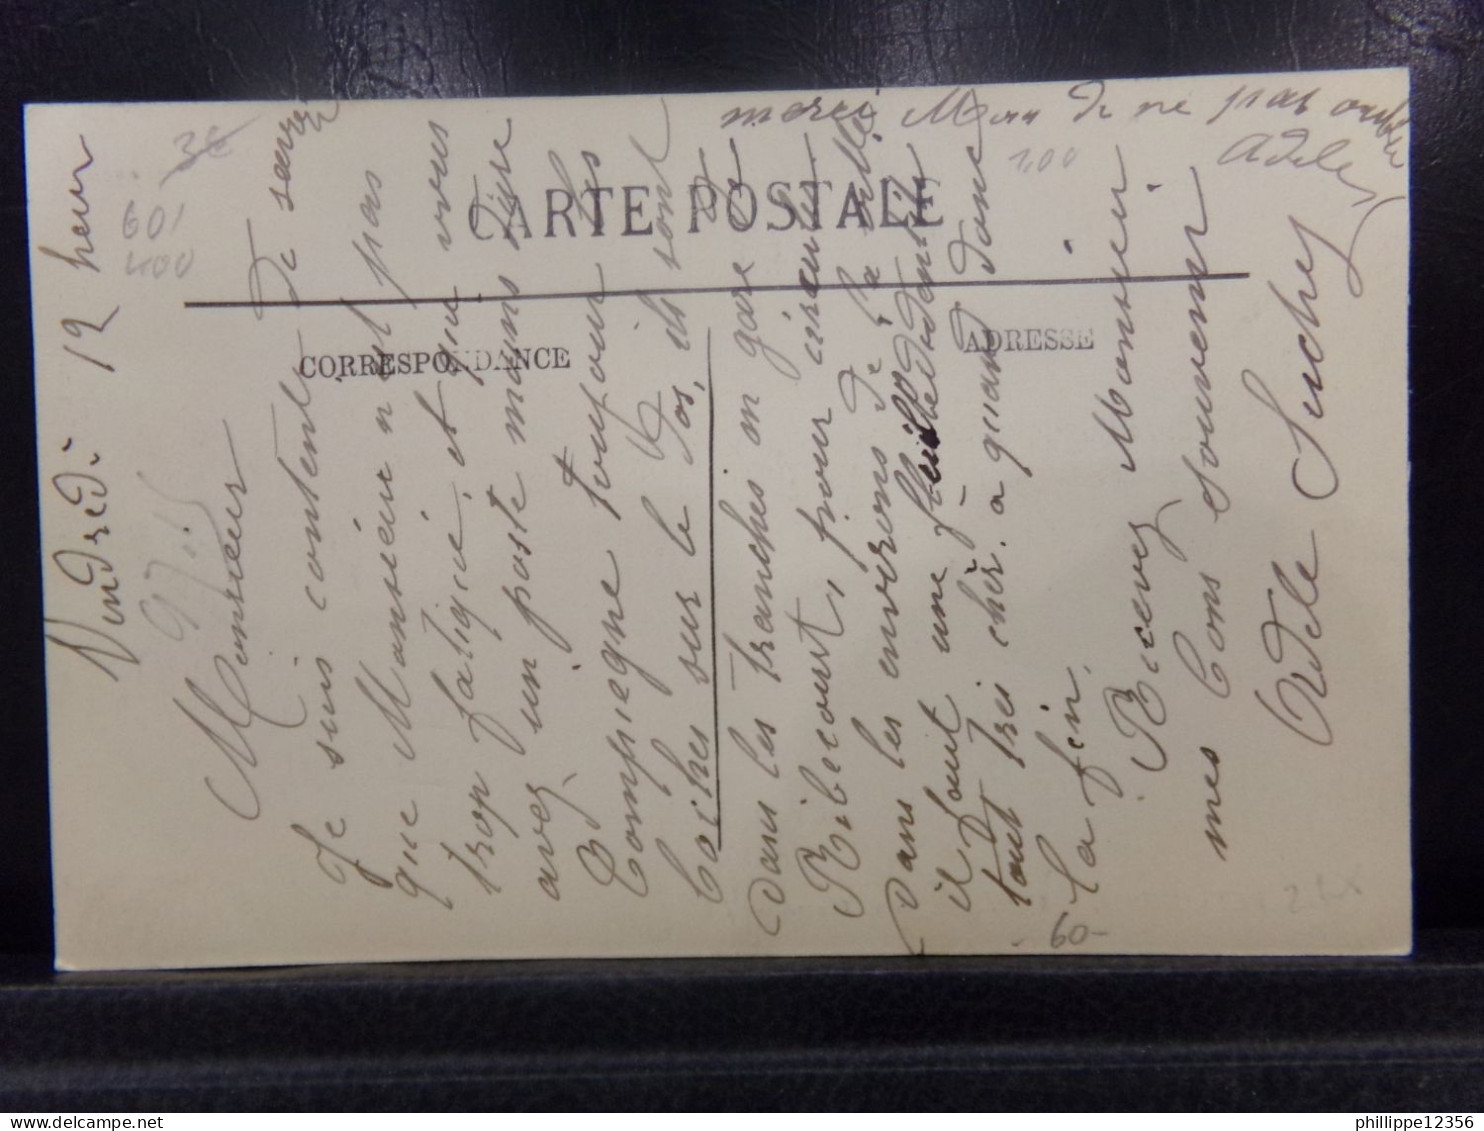 CARTE POSTALE
CORRESPONDANCE
ADRESSE
Vendredi 12 heur
Monsieur
Je suis contente De savoir
que Monsieur n'est pas
trop fatigué, et que vous
avez un poste moins dure
Compiegne toujour les
boches sur le Dos, ils sont
Dans les tranches on gare
Ribecourt, pour
Dans les environs de la ville
il faut une
tout tres cher. a quand donc
la fin.
Recevez Monsieur
mes bons souvenirs
Adele Suchey
merci De ne pas oublier
Adele
3€
601
400
100
60-
phillippe12356